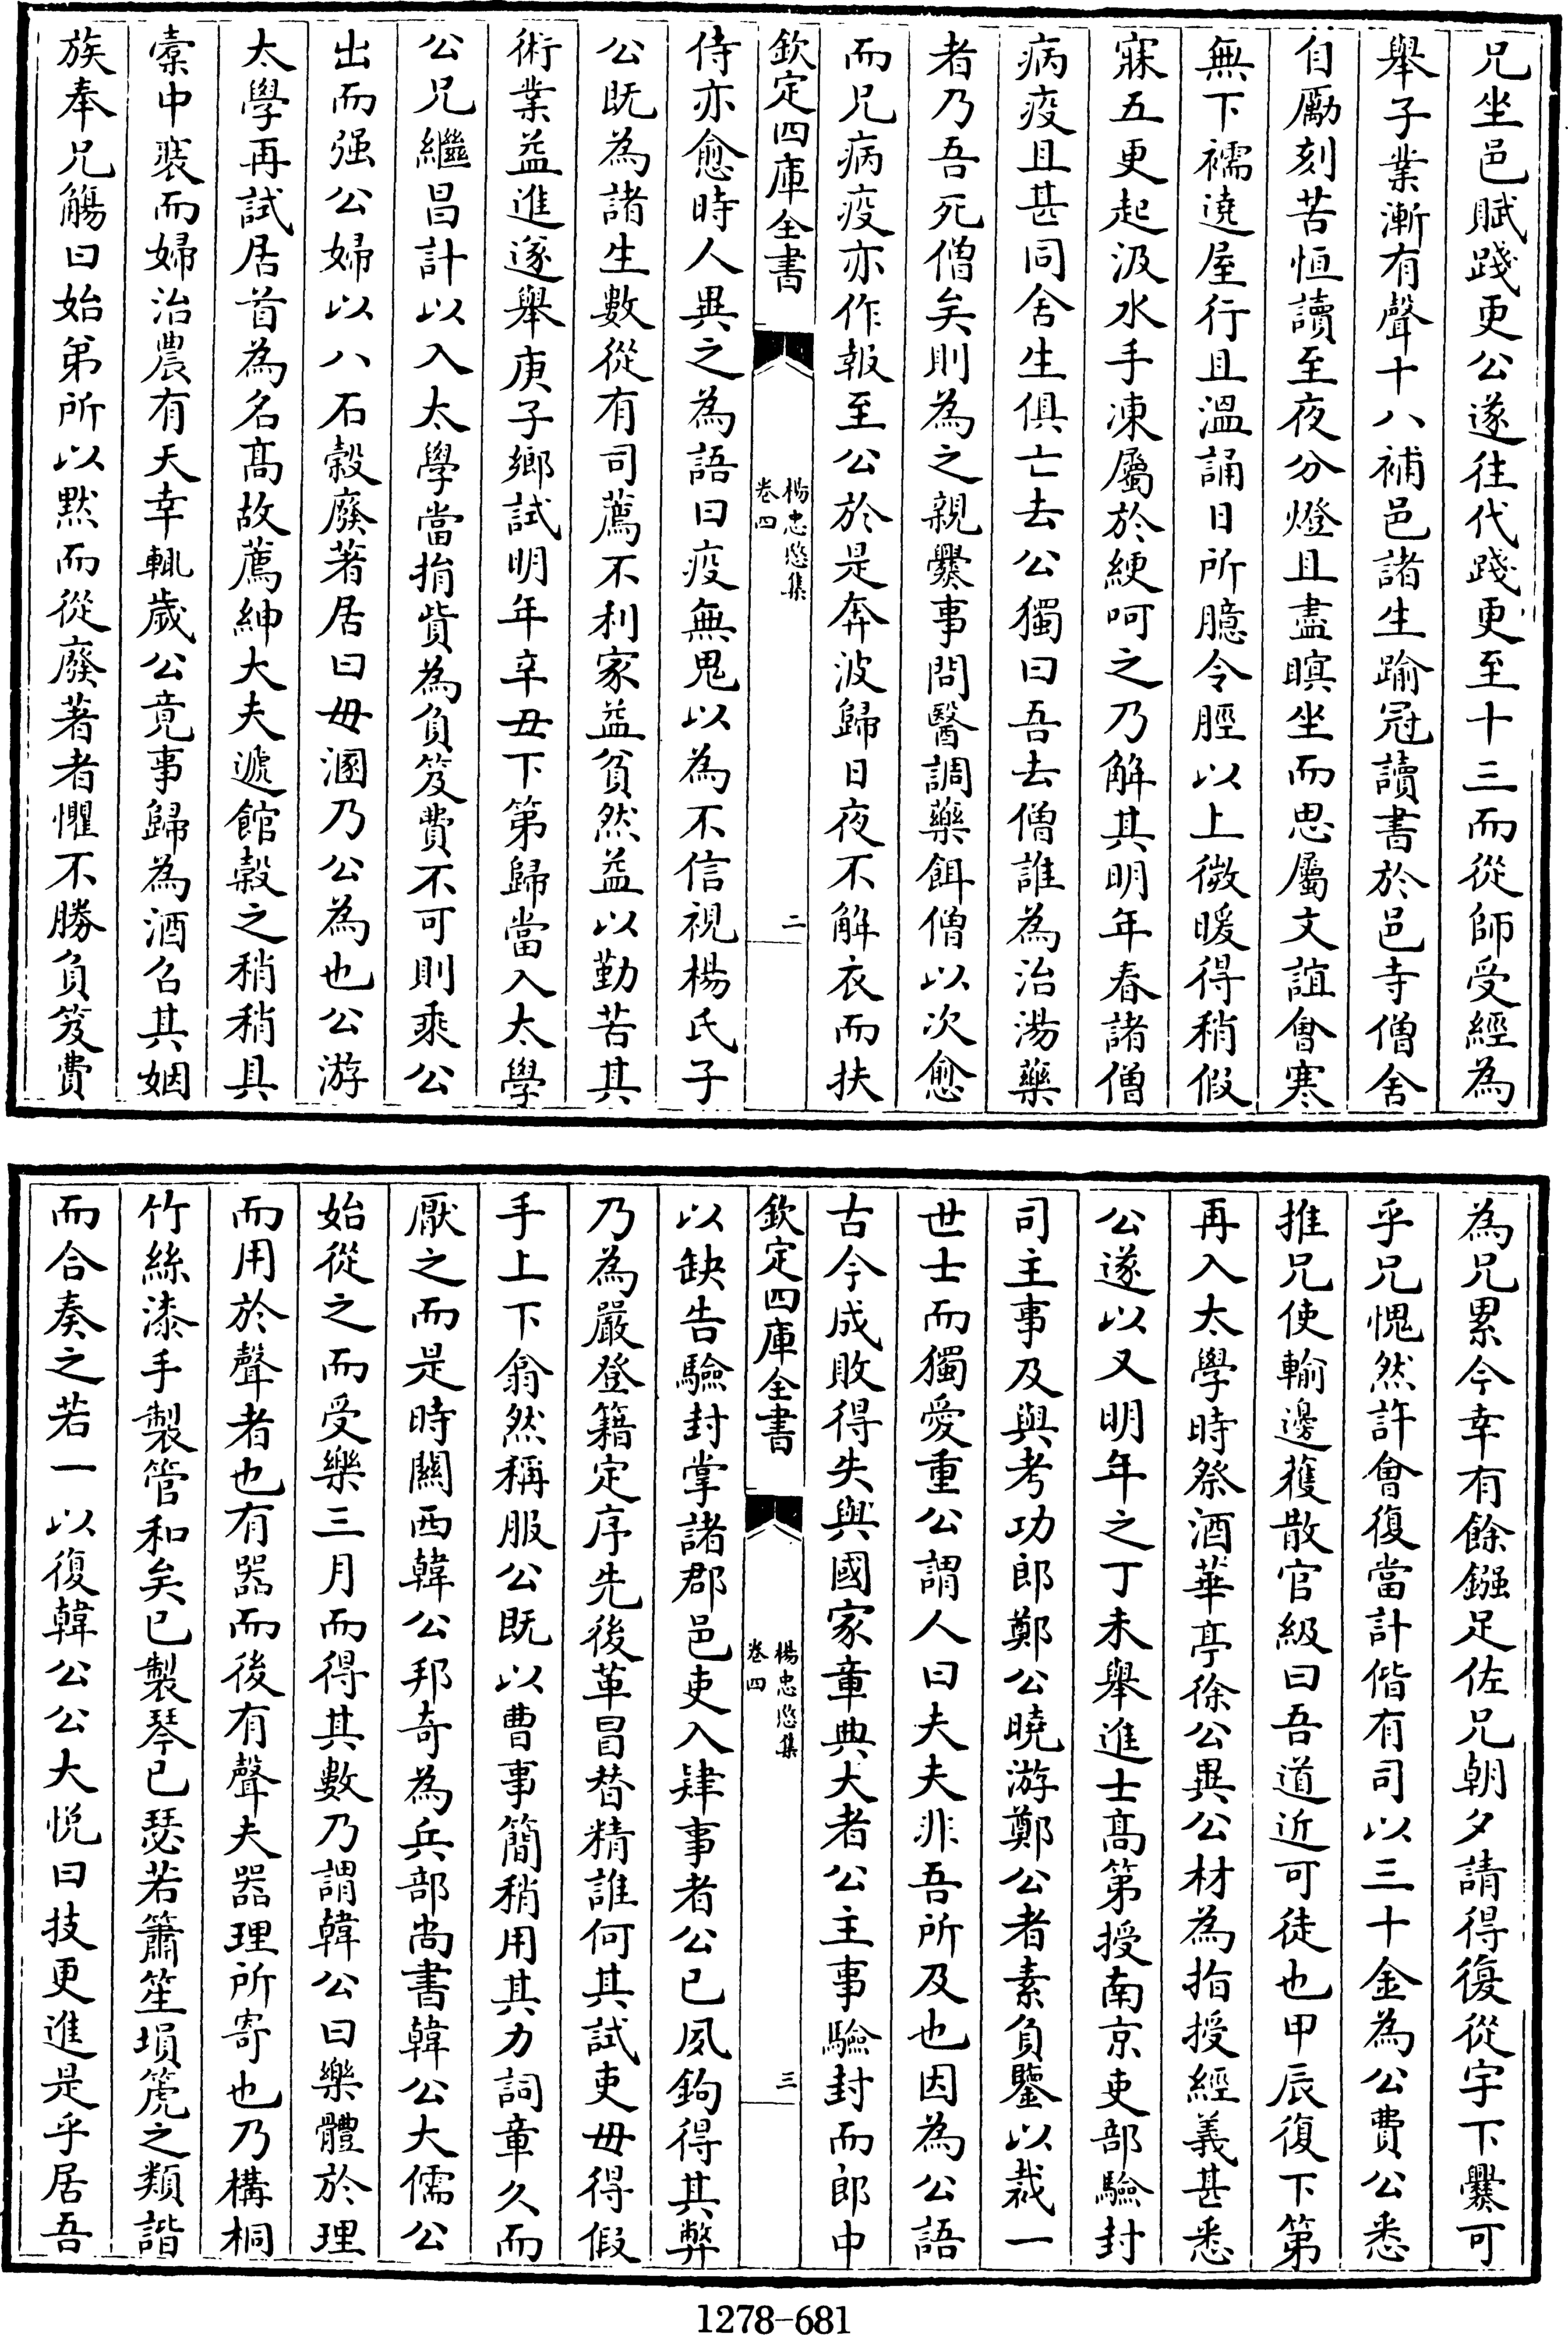 兄坐邑賦踐更公遂往代踐更至十三而從師受經為
舉子業漸有聲十八補邑諸生踰冠讀書於邑寺僧舍
自勵刻苦恒讀至夜分燈且盡瞑坐而思屬文誼會寒
無下襦遶屋行且溫誦日所臆令脛以上微暖得稍假
寐五更起汲水手凍屬於綆呵之乃解其明年春諸僧
病疫且甚同舍生俱亡去公獨曰吾去僧誰為治湯藥
者乃吾死僧矣則為之親爨事問醫調藥餌僧以次愈
而兄病疫亦作報至公於是奔波歸日夜不解衣而扶
欽定四庫全書 楊忠愍集 卷四 二
侍亦愈時人異之為語曰疫無鬼以為不信視楊氏子
公既為諸生數從有司薦不利家益貧然益以勤苦其
術業益進遂舉庚子鄉試明年辛丑下第歸當入太學
公兄繼昌計以入太學當捐貲為負笈費不可則乘公
出而强公婦以八石穀廢著居曰毋溷乃公為也公游
太學再試居首為名髙故薦紳大夫遞館穀之稍稍具
橐中裝而婦治農有天幸輒歲公竟事歸為酒召其姻
族奉兄觴曰始弟所以默而從廢著者懼不勝負笈費
為兄累今幸有餘鏹足佐兄朝夕請得復從宇下爨可
乎兄愧然許會復當計偕有司以三十金為公費公悉
推兄使輸邊獲散官級曰吾道近可徒也甲辰復下第
再入太學時祭酒華亭徐公異公材為指授經義甚悉
公遂以又明年之丁未舉進士髙第授南京吏部驗封
司主事及與考功郎鄭公曉游鄭公者素負鑒以裁一
世士而獨愛重公謂人曰夫夫非吾所及也因為公語
古今成敗得失與國家章典大者公主事驗封而郎中
欽定四庫全書 楊忠愍集 卷四 三
以缺告驗封掌諸郡邑吏入肄事者公已夙鉤得其弊
乃為嚴登籍定序先後革冒替精誰何其試吏毋得假
手上下翕然稱服公既以曹事簡稍用其力詞章久而
厭之而是時關西韓公邦奇為兵部尚書韓公大儒公
始從之而受樂三月而得其數乃謂韓公曰樂體於理
而用於聲者也有器而後有聲夫器理所寄也乃構桐
竹絲漆手製管和矣已製琴已瑟若簫笙塤篪之類諧
而合奏之若一以復韓公公大悅曰技更進是乎居吾
1278-681